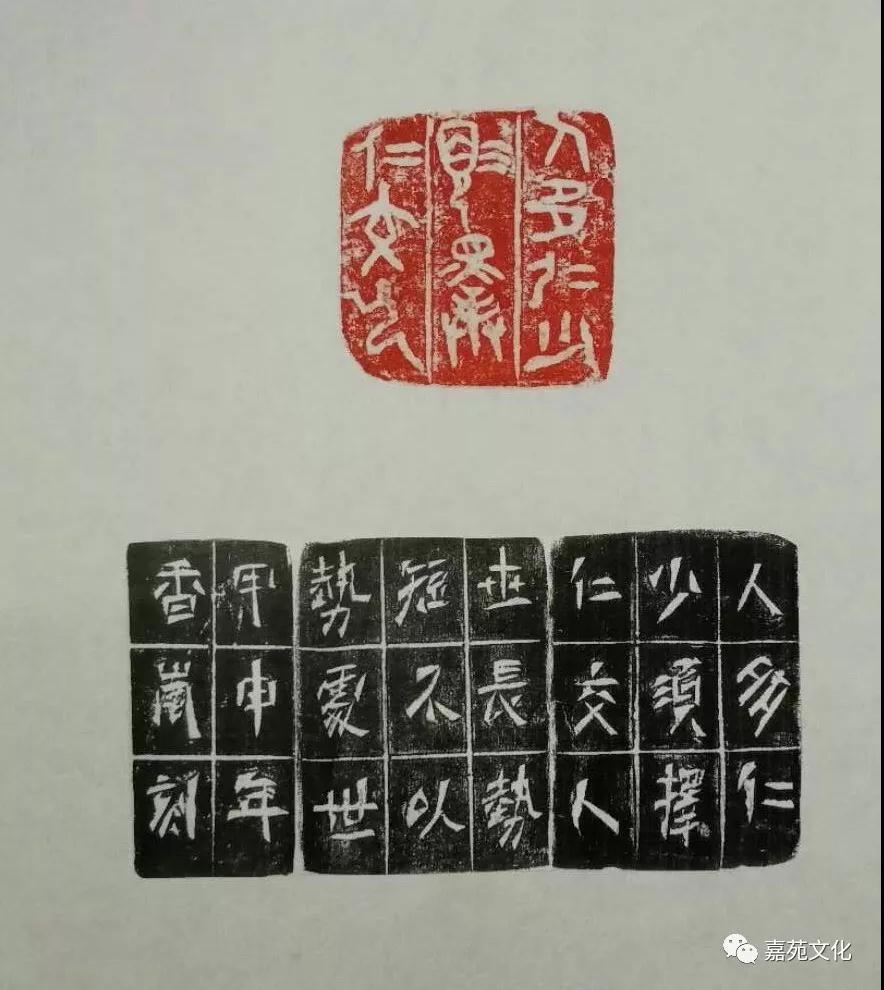 人多仁少
須擇
仁交
人多仁
少須擇
仁交人
世長勢
短不以
勢處世
甲申年
香嵐刻
嘉苑文化